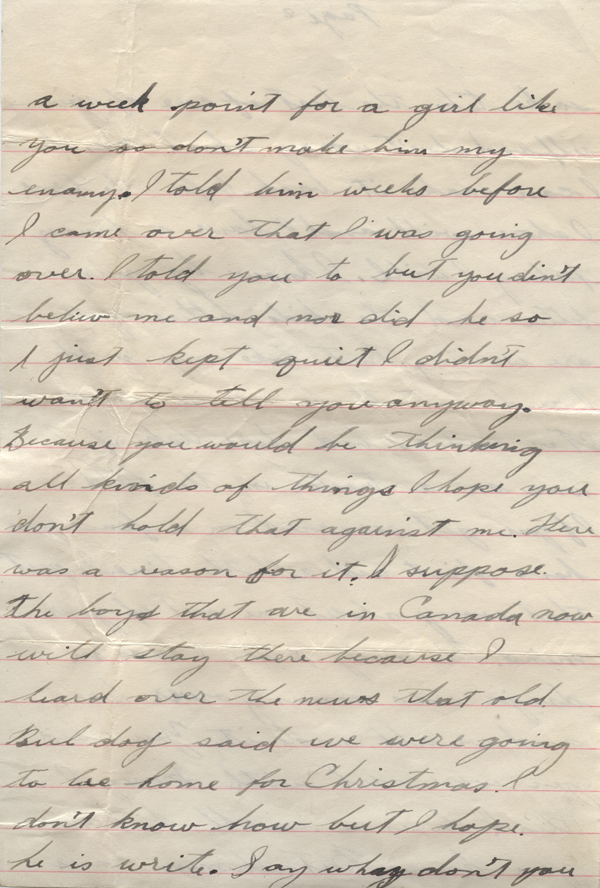 Page 2
a week point for a girl like
you so don't make him my
enamy. I told him weeks before
I came over that I was going
over. I told you to but you din't
believ me and nor did he so
I just kept quiet I didn't
wan't to tell you anyway.
Because you would be thinking
all kinds of things I hope you
don't hold that against me. Here
was a reason for it. I suppose.
the boys that are in Canada now
will stay there because I
heard over the news that old
Bul dog said we were going
to be home for Christmas. I
don't know how but I hope.
he is write. Say why don't you